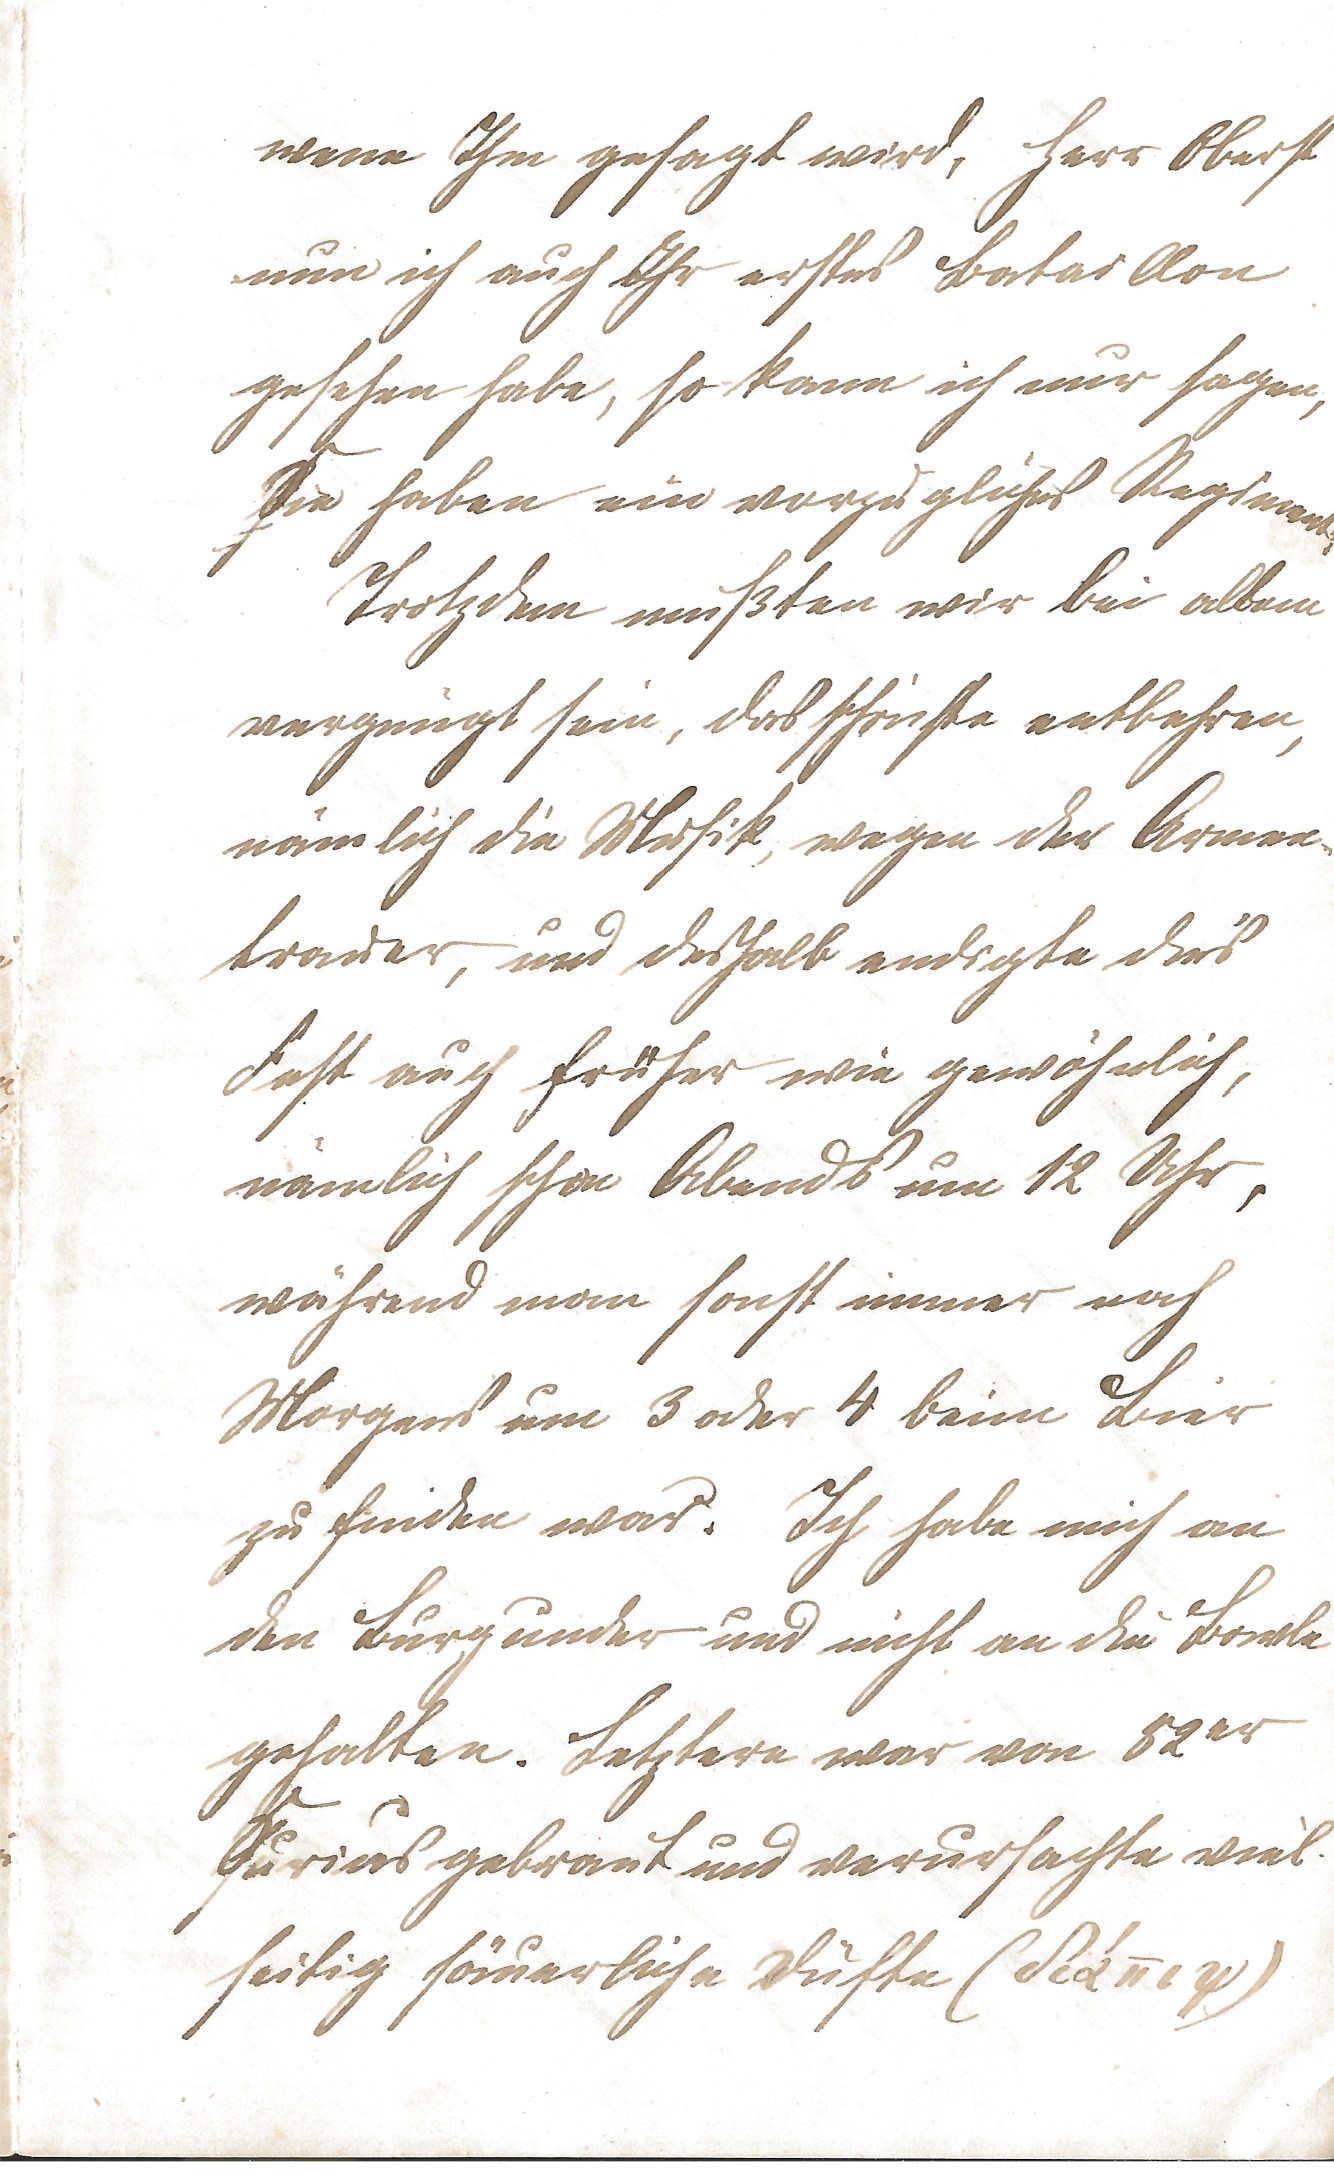 wenn Ihm gesagt wird, Herr Oberst
nun ich auch Ihr erstes Bataillon
gesehen habe, so kann ich nur sagen,
Sie haben ein vorzügliches Regiment.
Trotzdem mußten wir bei allem
vergnügt sein, das schönste entbehren,
nämlich die Musik, wegen der Armee-
trauer, und deshalb endigte dies
Fest auch früher wie gewöhnlich,
nämlich schon Abends um 12 Uhr,
während man sonst immer noch
Morgens um 3 oder 4 beim Bier
zu finden war. Ich habe mich an
den Burgunder und nicht an die Bowle
gehalten. Letztere war von 52er
gebraut und verursachte viel-
seitig säuerliche Düfte